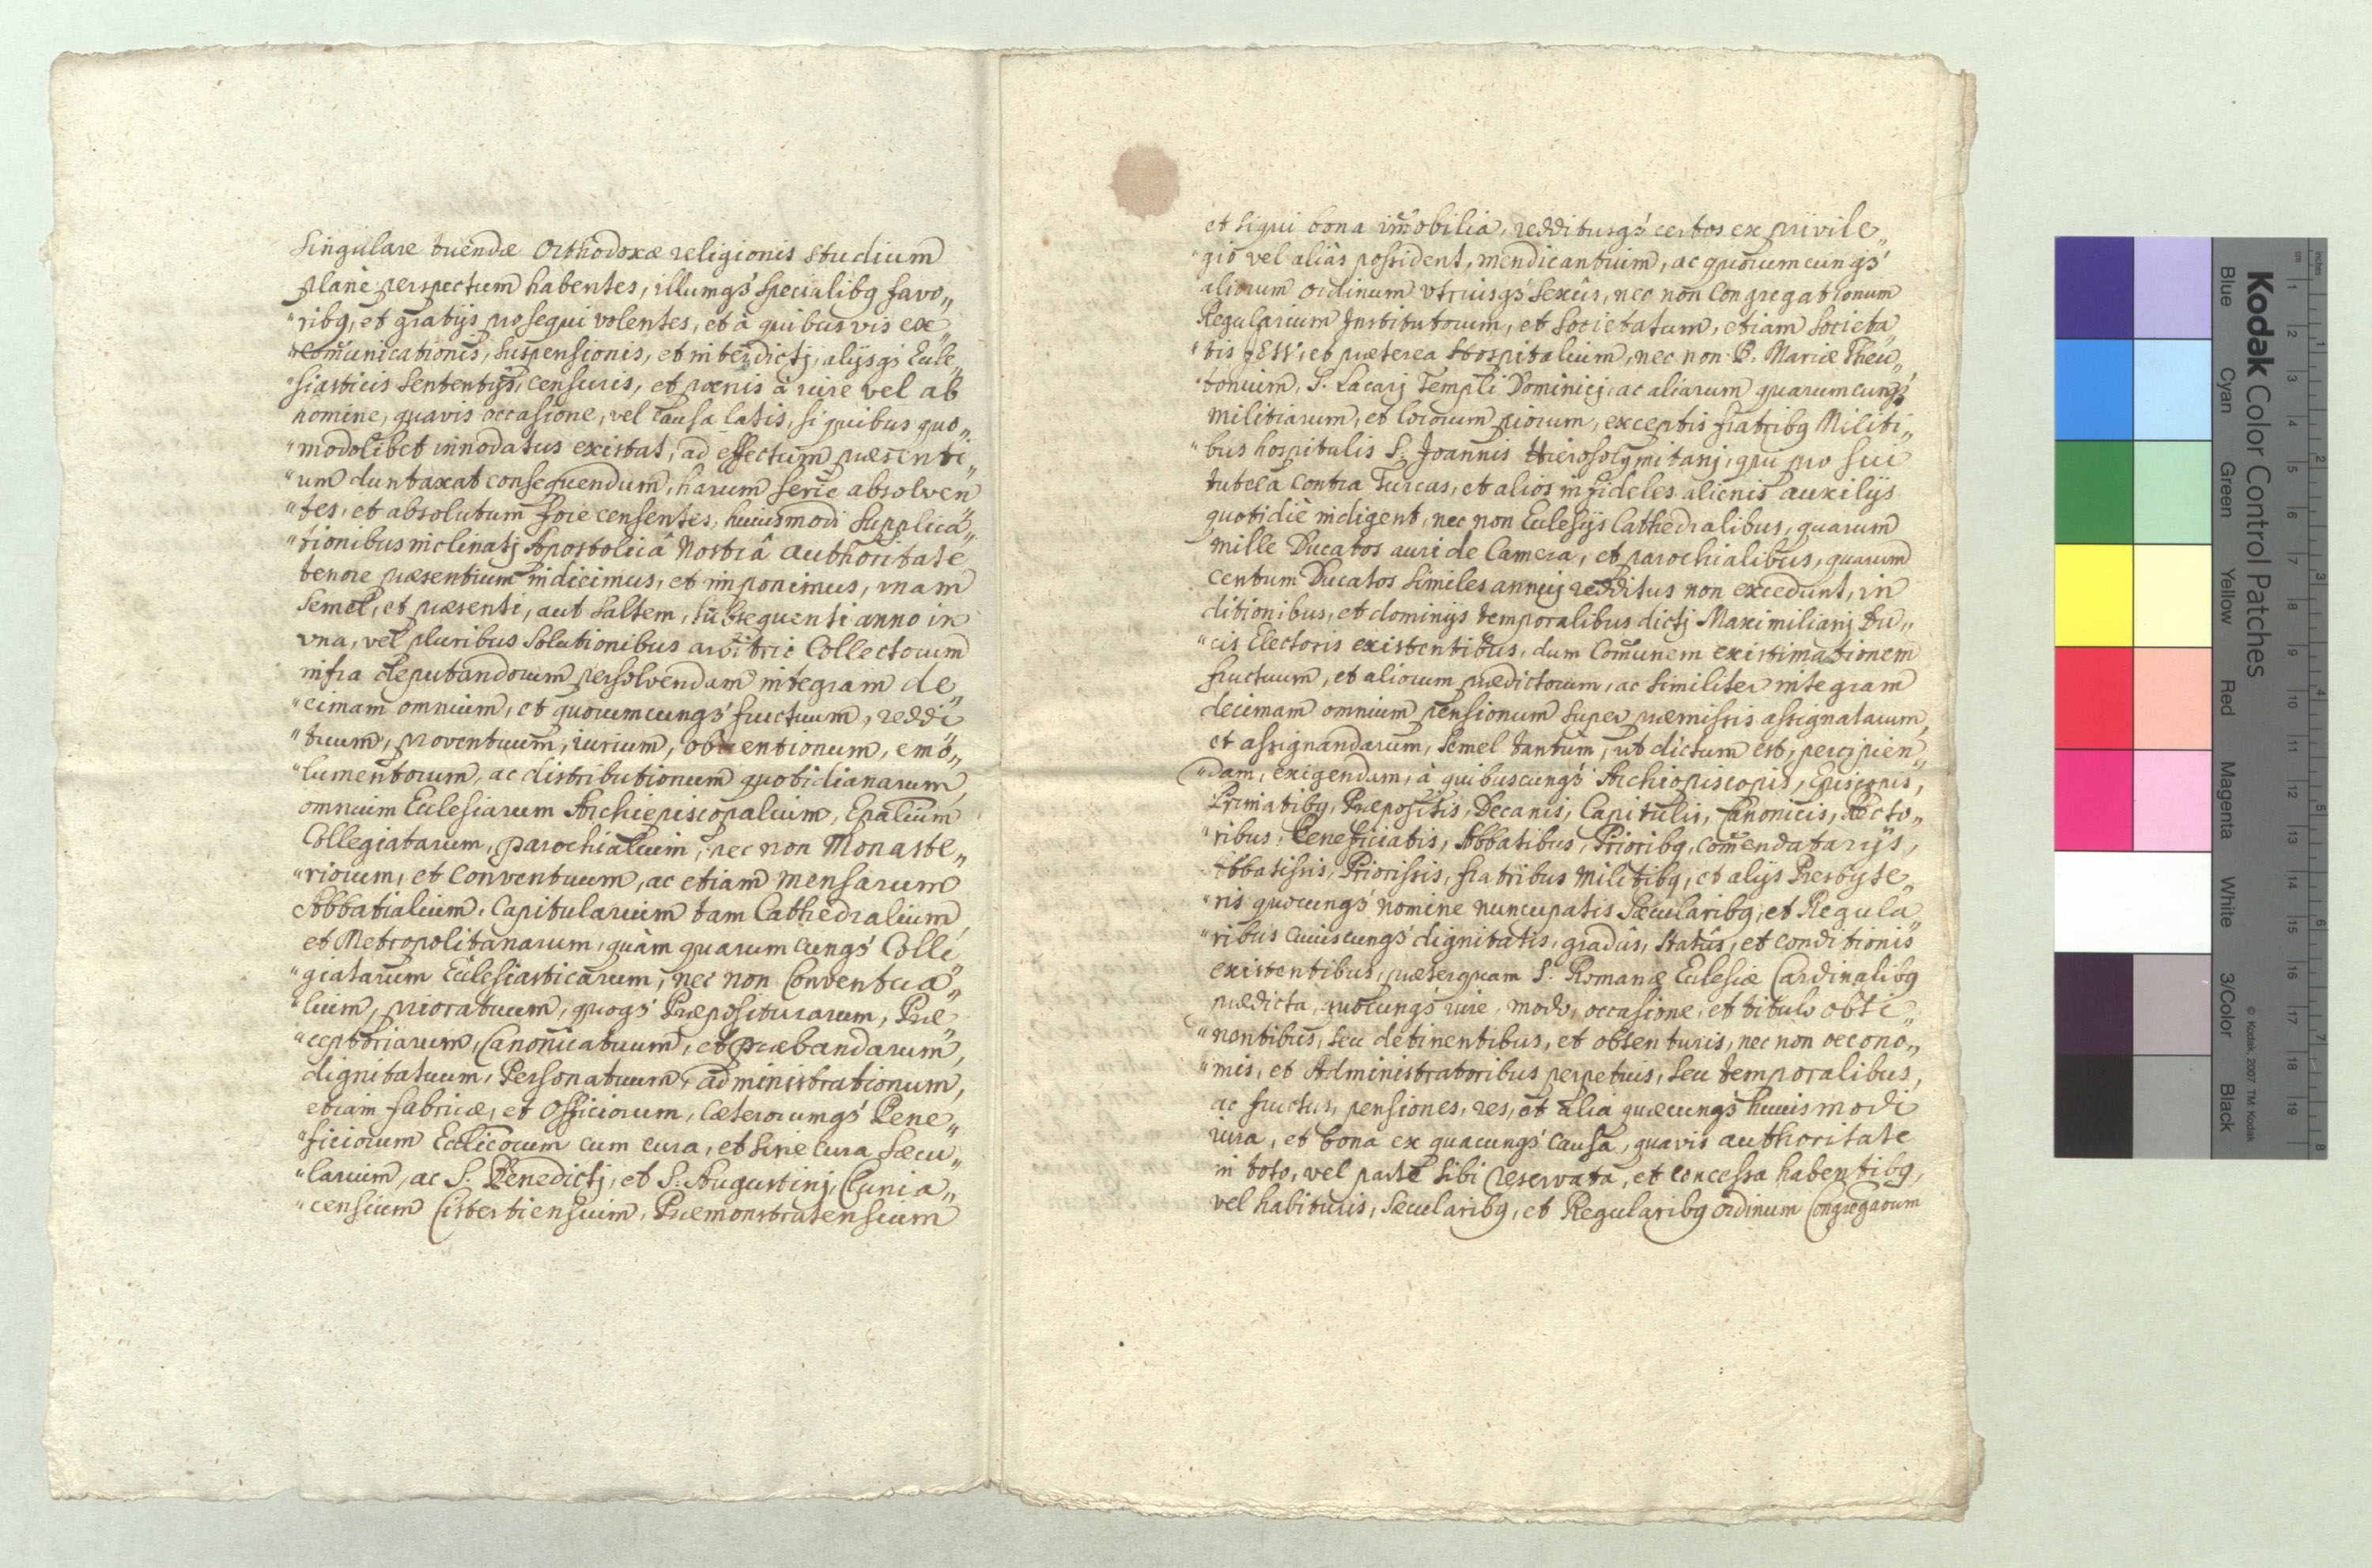 Singulare tuendæ Orthodoxæ religionis studium
planè perspectum habentes, illumq₃ specialibq favo„
"ribq, et gratijs prosequi volentes, et à quibusvis ex„
"comunicationis, suspensionis, et interdictj, alijsq₃ Eccle„
"siasticis sententijs, censuris, et pœnis à iure vel ab
homine, quavis occasione, vel causa latis, si quibus quo„
"modolibet innodatus existat, ad effectum præsenti„
"um duntaxat consequendum, harum serie absolven„
"tes, et absolutum fore censentes, huiusmodi supplica„
"tionibus inclinatj Apostolicâ Nostrâ authoritate
tenore præsentium indicimus, et imponimus, unam
semel, et præsenti, aut saltem, subsequenti anno in
vna, vel pluribus solutionibus arbitrio Collectorum
infra deputandorum persolvendam integram de„
"cimam omnium, et quorumcunq₃ fructuum, reddi„
"tuum, proventuum, iurium, obventionum, emo„
"lumentorum, ac distributionum quotidianarum,
omnium Ecclesiarum Archiepiscopalium, Epalium
Collegiatarum, parochialium, nec non Monaste„
"riorum, et Conventuum, ac etiam mensarum
Abbatialium, Capitularium tam Cathedralium,
et Metropolitanarum, quàm quarumcunq₃ Colle„
"giatarum Ecclesiasticarum, nec non Conventua„
"lium, prioratuum, quoq₃ Præpositurarum, Præ„
"ceptoriarum, Canonicatuum, et præbandarum,
dignitatuum, Personatuum, administrationum,
etiam fabricæ, et Officiorum, cæterorumq₃ Bene„
"ficiorum Ecclicorum cum cura, et sine cura sæcu„
"larium, ac S. Benedictj, et S. Augustinj, Clunia„
"censium Cistertiensium, Præmonstratensium
et siqui bona imobilia, redditusq₃ certos ex privile„
"gio vel aliàs possident, mendicantium, ac quorumcunq₃
aliorum ordinum vtriusq₃ sexûs, nec non Congregationum
Regularium Institutorum, et Societatum, etiam Societa„
"tis JESV, et præterea Hospitalium, nec non B. Mariæ Theu„
"tonium, S. Lazarj Templi Dominicj, ac aliarum quarumcunq₃
militiarum, et locorum piorum, exceptis fratribq Militi„
"bus hospitalis S. Joannis Hierosolymitanj, qui pro sui
tutela contra Turcas, et alios infideles alienis auxilijs
quotidiè indigent, nec non Eclesijs Cathedralibus, quarum
mille Ducatos auri de Camera, et parochialibus, quarum
centum Ducatos similes annuj redditus non excedunt, in
ditionibus, et dominijs temporalibus dictj Maximilianj Du„
"cis Electoris existentibus, dum Comunem existimationem
fructuum, et aliorum prædictorum, ac similiter integram
decimam omnium pensionum super præmissis assignatarum,
et assignandarum, semel tantum, ut dictum est, percipien„
"dam, exigendam, à quibuscunq₃ Archiepiscopis, Episcopis,
Primatibq, Præpositis, Decanis, Capitulis, Canonicis, Recto„
"ribus, Beneficiatis, Abbatibus, Prioribq, comendatarijs,
Abbatissis, Priorissis, fratribus militibq, et alijs Presbyte„
"ris quocunq₃ nomine nuncupatis Sæcularibq, et Regula„
"ribus cuiuscunq₃ dignitatis, gradûs, statûs, et conditionis
existentibus, præterquam S. Romanæ Eclesiæ Cardinalibq
prædicta, quocunq₃ iure, modo, occasione, et titulo obti„
"nentibus, seu detinentibus, et obtenturis, nec non oecono„
"mis, et Administratoribus perpetuis, seu temporalibus,
ac fructus, pensiones, res, et alia quæcunq₃ huiusmodi
iura, et bona ex quacunq₃ causa, quavis authoritate
in toto, vel parte sibi reservata, et concessa habentibq,
vel habituris, sæcularibq, et Regularibq ordinum Congregaoum
Kodak Color Control Patches
Blue Cyan Green Yellow Red Magenta White 3/Color Black
© Kodak, 2007 TM: Kodak
cm 1 2 3 4 5 6 7 8 9 10 11 12 13 14 15 16 17 18 19
inches 1 2 3 4 5 6 7 8